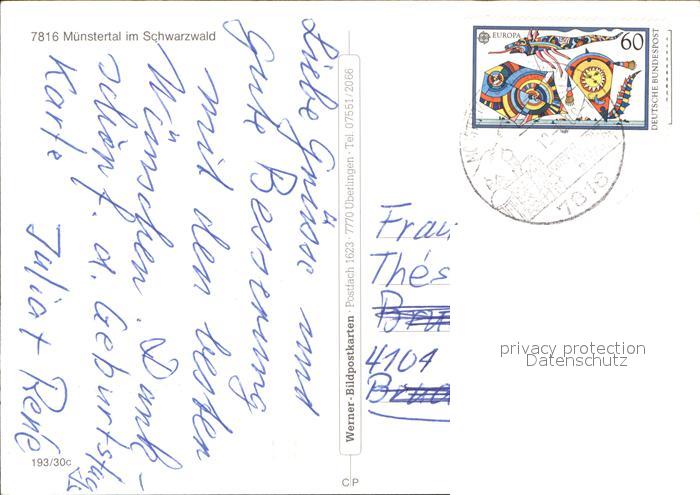 7816 Münstertal im Schwarzwald
Liebe Grüsse und
gute Besserung
mit den besten
Wünschen. Dank-
schön f. d. Geburtstags
Karte
Julia + René
193/30c
Werner-Bildpostkarten · Postfach 1623 · 7770 Überlingen · Tel. 07551/2066
C P
EUROPA
60
DEUTSCHE BUNDESPOST
7816
Frau
Thés
4104
privacy protection
Datenschutz